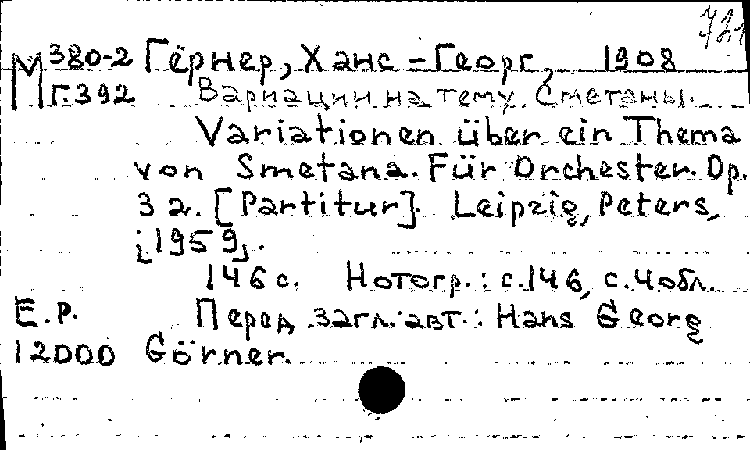 721
М 380-2 Гёрнер, Ханс-Георг, 1908
Г.392 Вариации на тему Сметаны.
Variationen über ein Thema
von Smetana. Für Orchester. Op.
32. [Partitur]. Leipzig, Peters,
[1959].
146 с. Нотогр.: с.146, с.4 обл.
E.P. Перед загл. авт.: Hans Georg
12000 Görner.